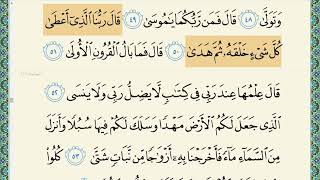 وَتَوَلَّىٰ ٤٨ قَالَ فَمَن رَّبُّكُمَا يَٰمُوسَىٰ ٤٩ قَالَ رَبُّنَا ٱلَّذِىٓ أَعْطَىٰ
كُلَّ شَىْءٍ خَلْقَهُۥ ثُمَّ هَدَىٰ ٥٠ قَالَ فَمَا بَالُ ٱلْقُرُونِ ٱلْأُولَىٰ ٥١
قَالَ عِلْمُهَا عِندَ رَبِّى فِى كِتَٰبٍ لَّا يَضِلُّ رَبِّى وَلَا يَنسَى ٥٢
ٱلَّذِى جَعَلَ لَكُمُ ٱلْأَرْضَ مَهْدًا وَسَلَكَ لَكُمْ فِيهَا سُبُلًا وَأَنزَلَ
مِنَ ٱلسَّمَآءِ مَآءً فَأَخْرَجْنَا بِهِۦٓ أَزْوَٰجًا مِّن نَّبَاتٍ شَتَّىٰ ٥٣ كُلُوا۟